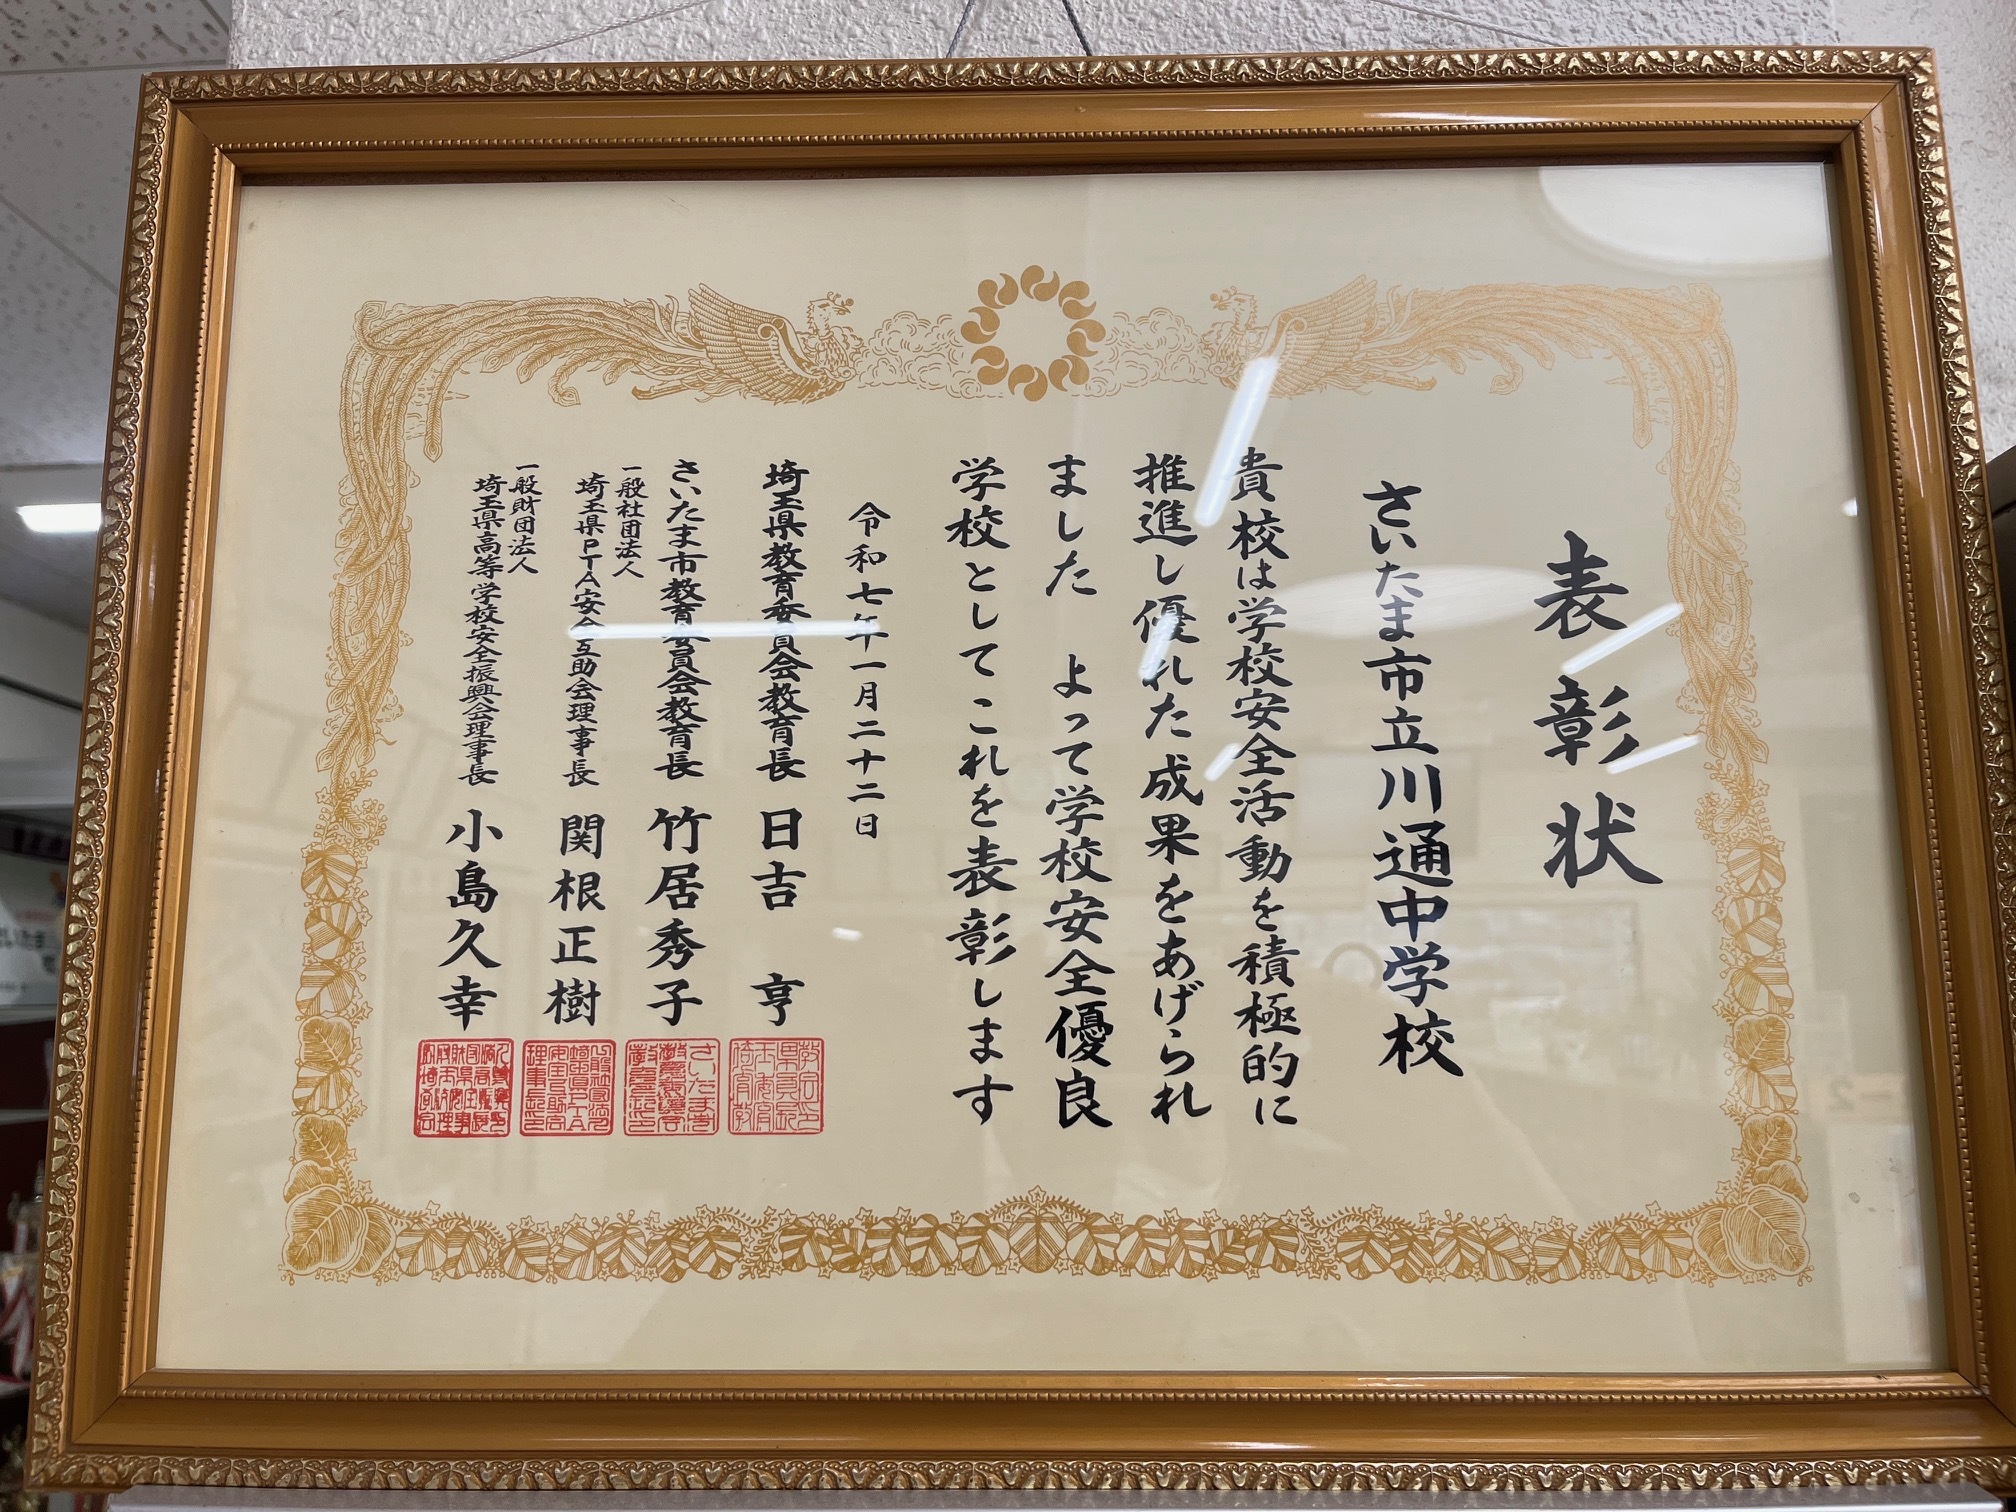 表彰状
さいたま市立川通中学校
貴校は学校安全活動を積極的に
推進し優れた成果をあげられ
ました よって学校安全優良
学校としてこれを表彰します
令和七年一月二十二日
埼玉県教育委員会教育長 日吉 亨
さいたま市教育委員会教育長 竹居秀子
一般社団法人
埼玉県PTA安全互助会理事長 関根正樹
一般財団法人
埼玉県高等学校安全振興会理事長 小島久幸